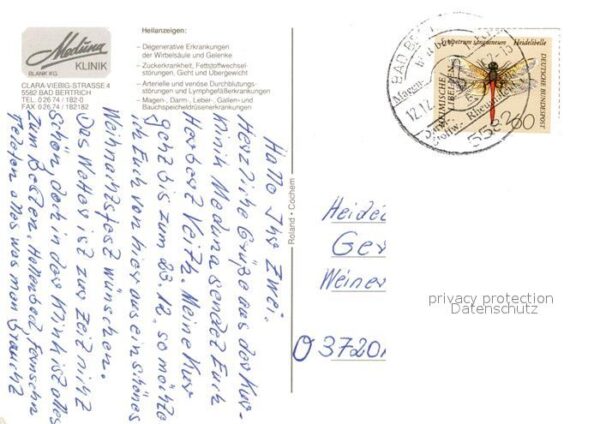 Meduna
KLINIK
BLANK KG
CLARA-VIEBIG-STRASSE 4
5582 BAD BERTRICH
TEL. 0 26 74 / 182-0
FAX 0 26 74 / 182182
Heilanzeigen:
– Degenerative Erkrankungen
der Wirbelsäule und Gelenke
– Zuckerkrankheit, Fettstoffwechsel-
störungen, Gicht und Übergewicht
– Arterielle und venöse Durchblutungs-
störungen und Lymphgefäßerkrankungen
– Magen-, Darm-, Leber-, Gallen- und
Bauchspeicheldrüsenerkrankungen
Hallo Ihr Zwei.
Herzliche Grüße aus der Kur-
klinik Meduna sendet Euch
Herbert Veith. Meine Kur
geht bis zum 23.12, so möchte
ich Euch von hier aus ein schönes
Weihnachtsfest wünschen.
Das Wetter ist zur Zeit nicht
schön, doch in der Klinik ist alles
zum Besten, Hallenbad, Fernsehn
Telefon alles was man braucht
Roland · Cochem
Sympetrum sanguineum Heidelibelle
DEUTSCHE BUNDESPOST
60
BAD BE
Magen-
Rheuma
5582
Heide
Ger
Weiner
O 3720
privacy protection
Datenschutz